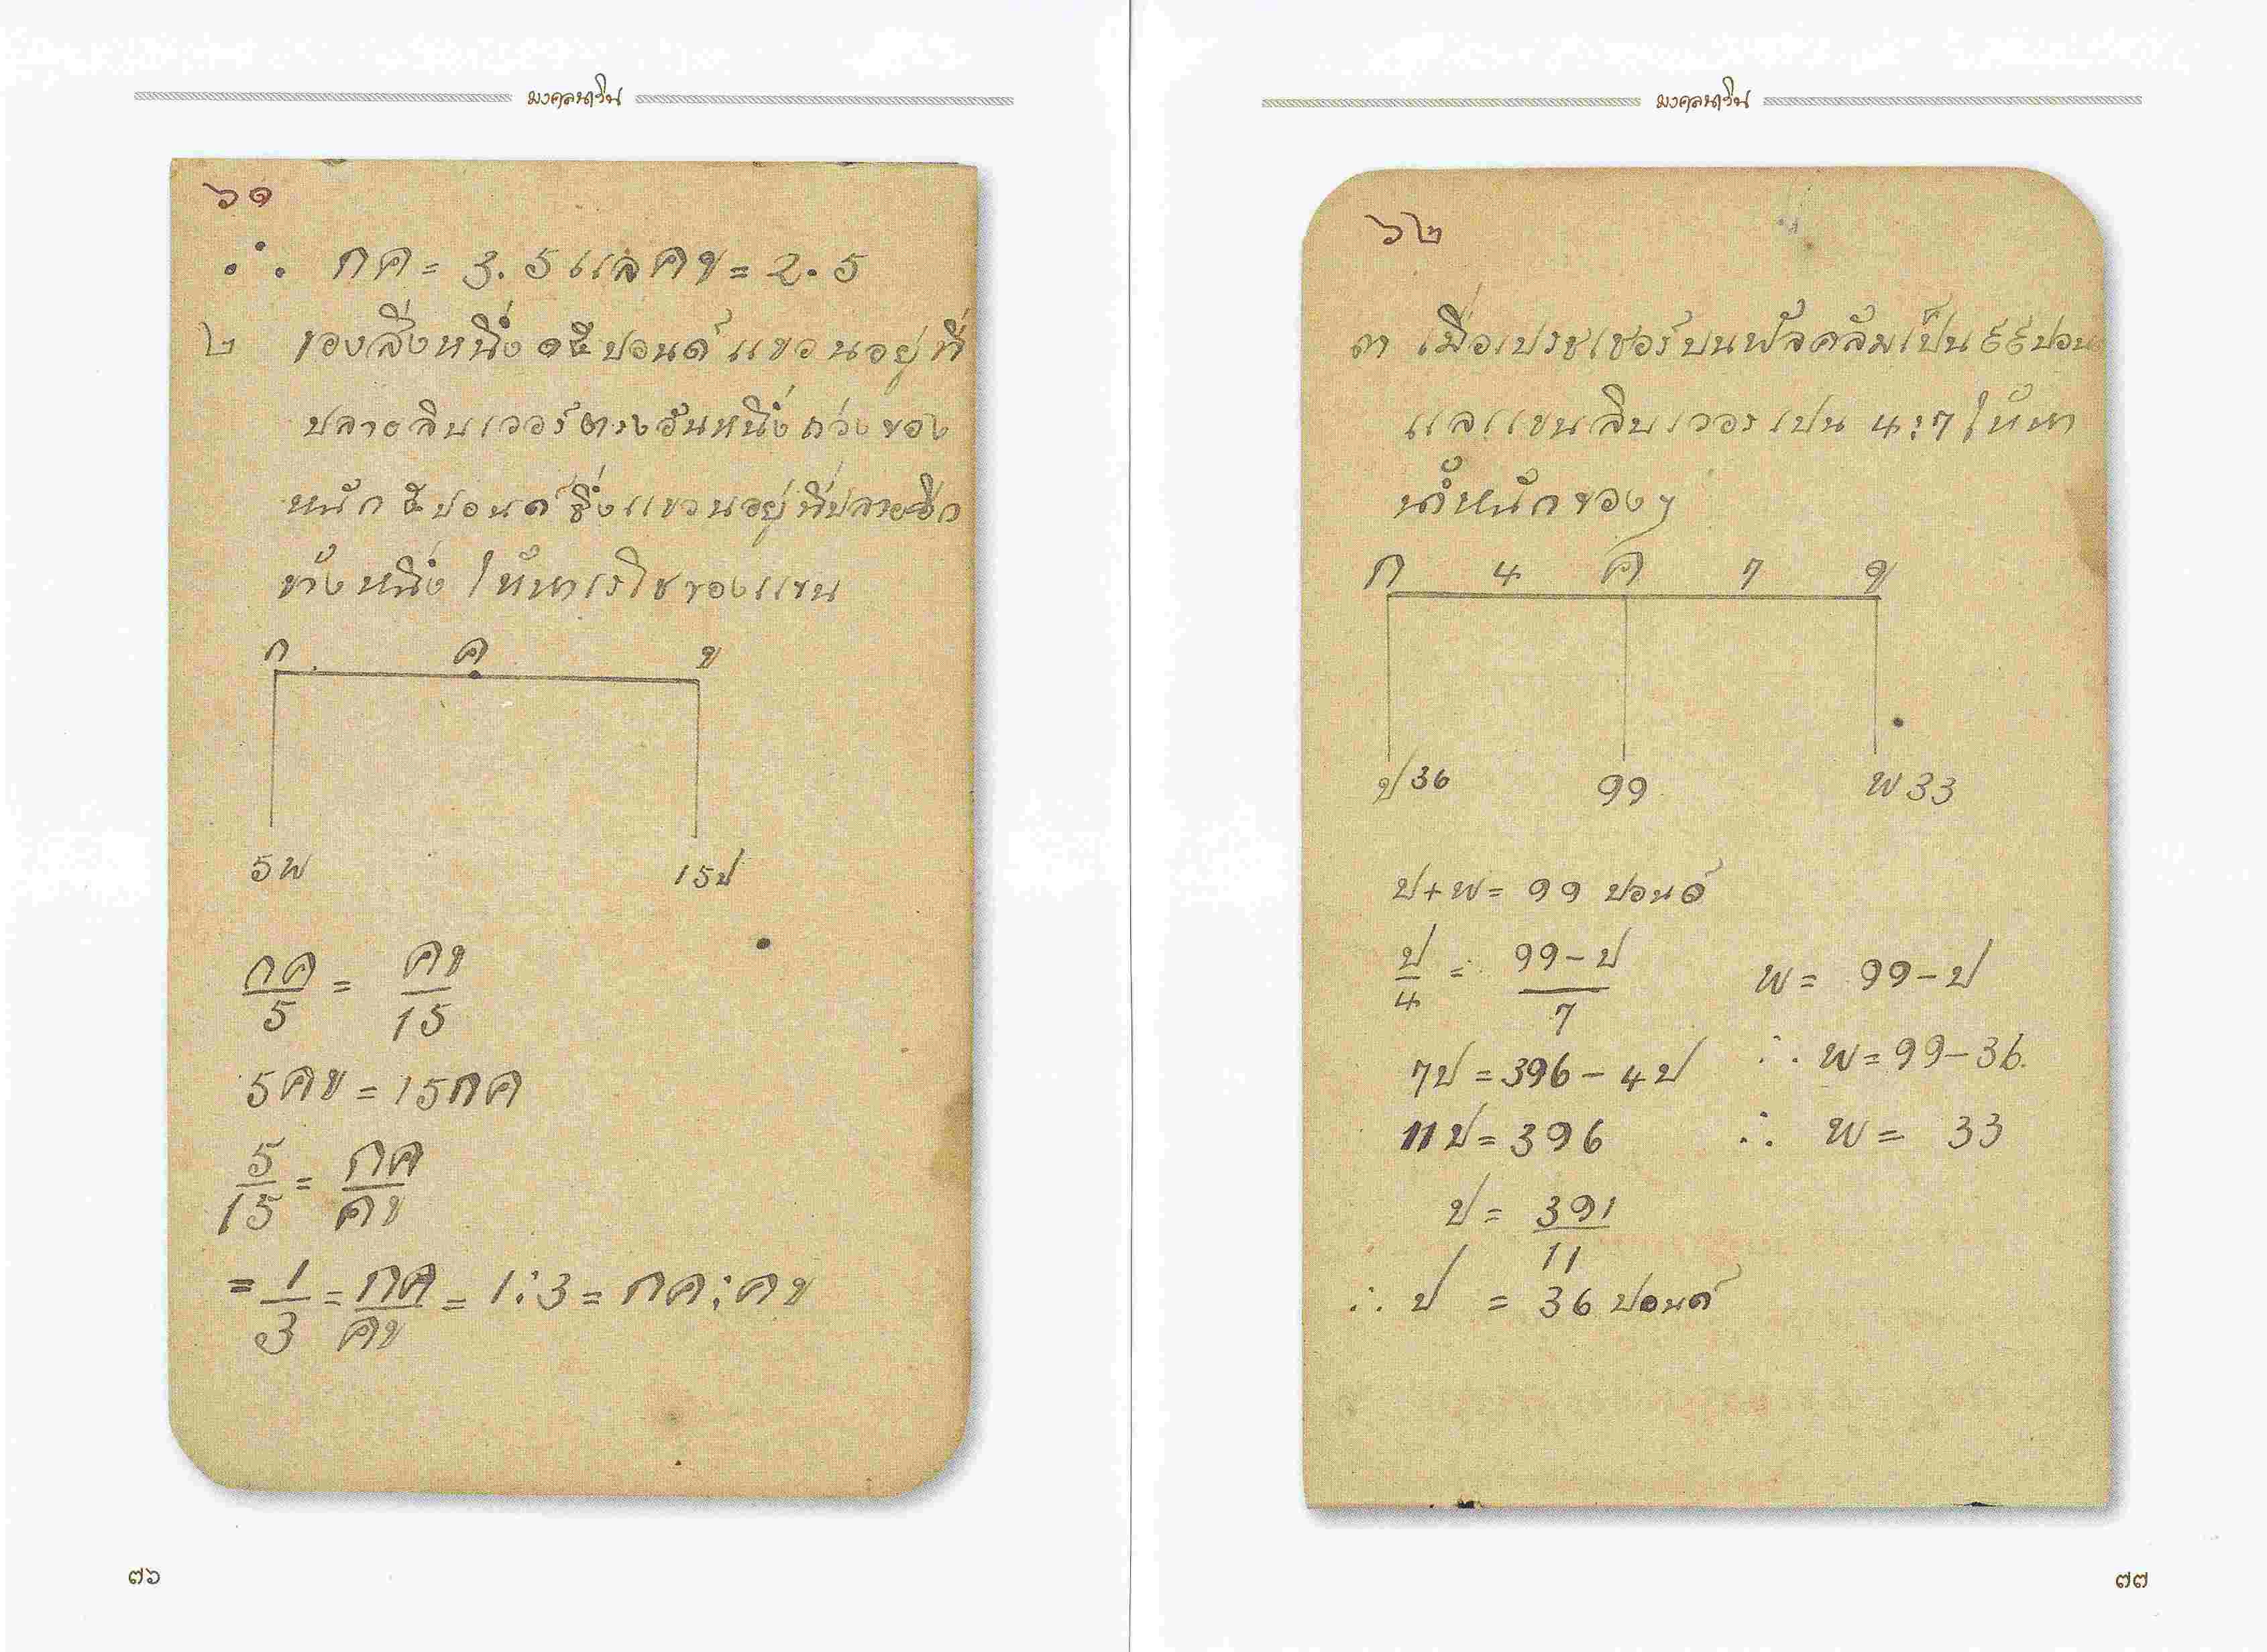 มงคลนาวิน
๖๑
∴ กค = 3.5 แลคข = 2.5
๒ ของสิ่งหนึ่ง ๑๕ ปอนด์ แขวนอยู่ที่
ปลายลิบเวอร์ตรงอันหนึ่ง ถ่วงของ
หนัก ๕ ปอนด์ ซึ่งแขวนอยู่ที่ปลายอีก
ข้างหนึ่ง ให้หาเรโชของแขน
ก ค ข
5พ 15ป
กค/5 = คข/15
5คข = 15กค
5/15 = กค/คข
= 1/3 = กค/คข = 1:3 = กค:คข
๗๖
มงคลนาวิน
๖๒
๓ เมื่อเปรชเชอร์บนฟัลคลัมเป็น ๙๙ ปอน
แลแขนลิบเวอรเปน 4:7 ให้หา
น้ำหนักของๆ
ก 4 ค 7 ข
ป36 99 พ33
ป+พ = 99 ปอนด์
ป/4 = 99-ป/7 พ = 99-ป
7ป = 396-4ป ∴ พ = 99-36.
11ป = 396 ∴ พ = 33
ป = 391/11
∴ ป = 36 ปอนด์
๗๗